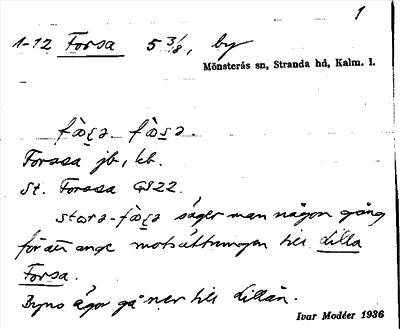 1
1-12 Forsa 5 3/8, by
Mönsterås sn, Stranda hd, Kalm. l.
fὰs̨ə fὰs̨ə.
Forssa jb, kb.
St. Forssa GS22.
stora-fὰs̨ə säger man någon gång
för att ange motsättningen till Lilla
Forsa.
Byns ägor gå ner till Lillån.
Ivar Modéer 1936